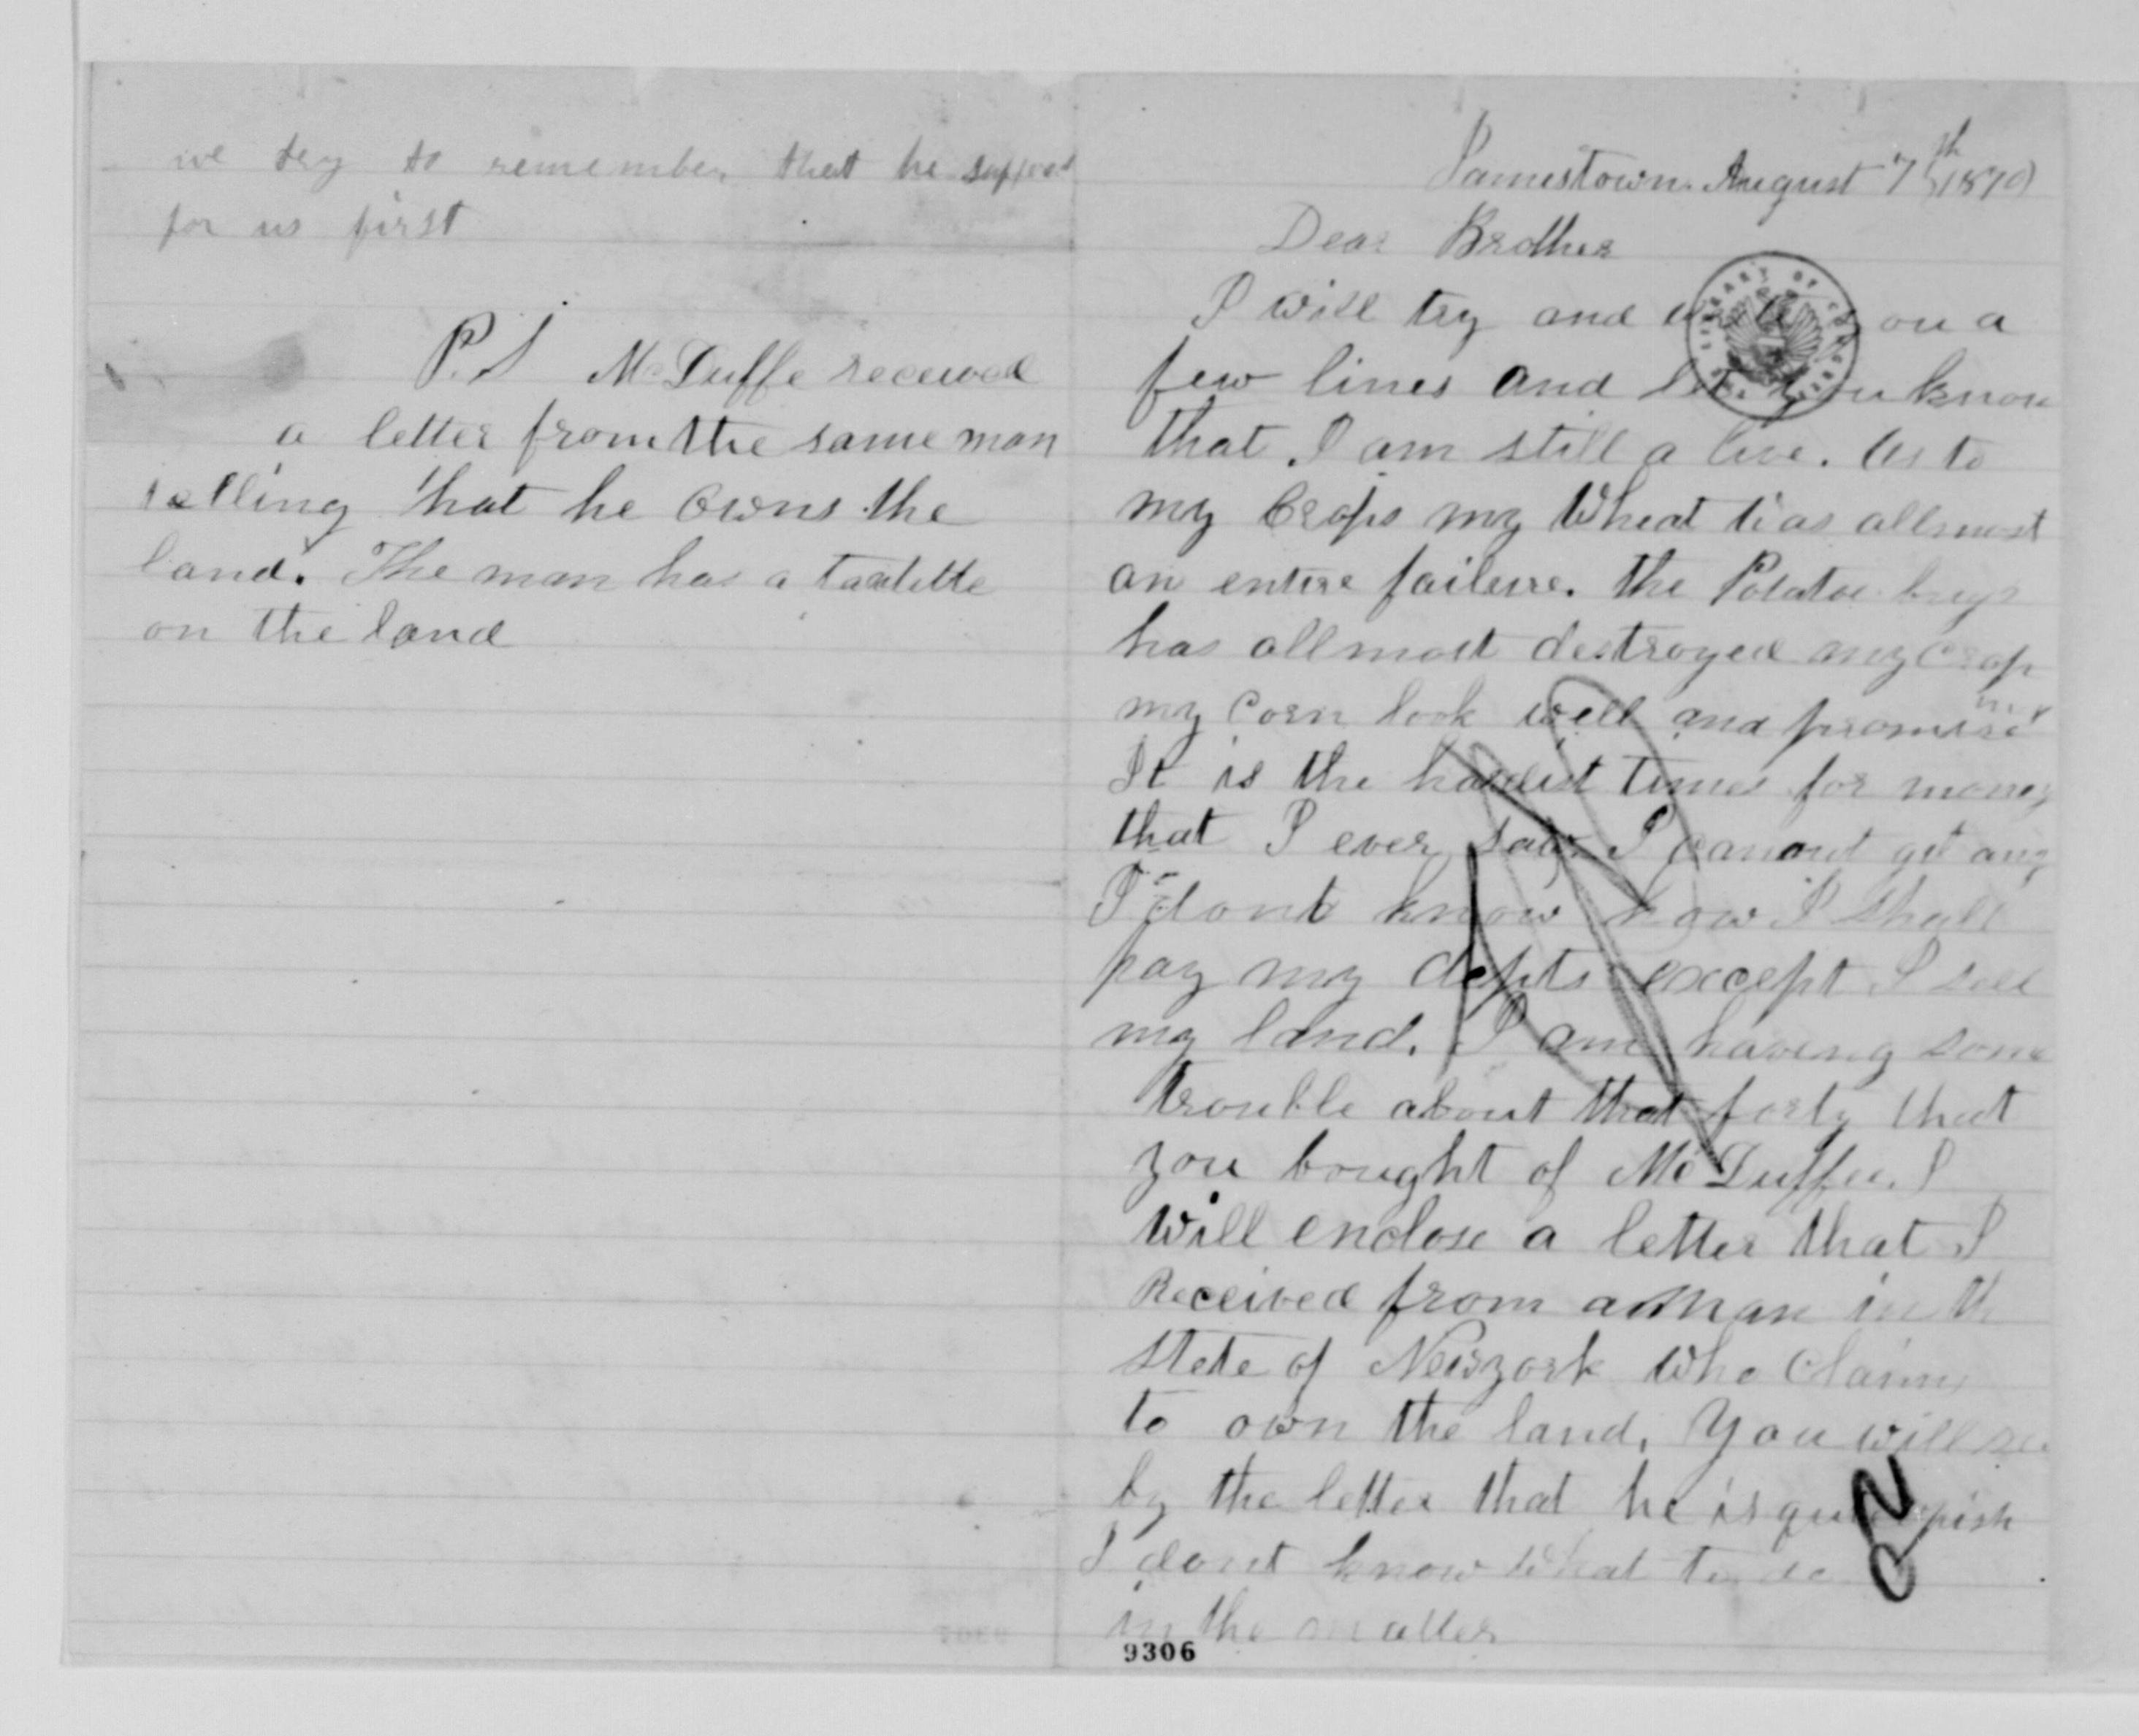 we try to remember that he suffered
for us first
P.S McDuffe received
a letter from the same man
telling that he owns the
land. The man has a taxtitle
on the land
Jamestown. August 7th 1870
Dear Brother
I will try and write you a
few lines and let you know
that I am still a live. As to
my Crops my Wheat was allmost
an entire failure. the Potatoe bugs
has allmost destroyed my Crop
my Corn look well and promising
It is the hardest times for money
that I ever saw I canont get any
I dont know how I shall
pay my depts except I sell
my land. I am having some
trouble about that forty that
you bought of McDuffee. I
will enclose a letter that I
Received from a man in the
state of Newyork who claims
to own the land, You will see
by the letter that he is quite
I dont know what to do
in the matter
9306
LIBRARY OF CONGRESS